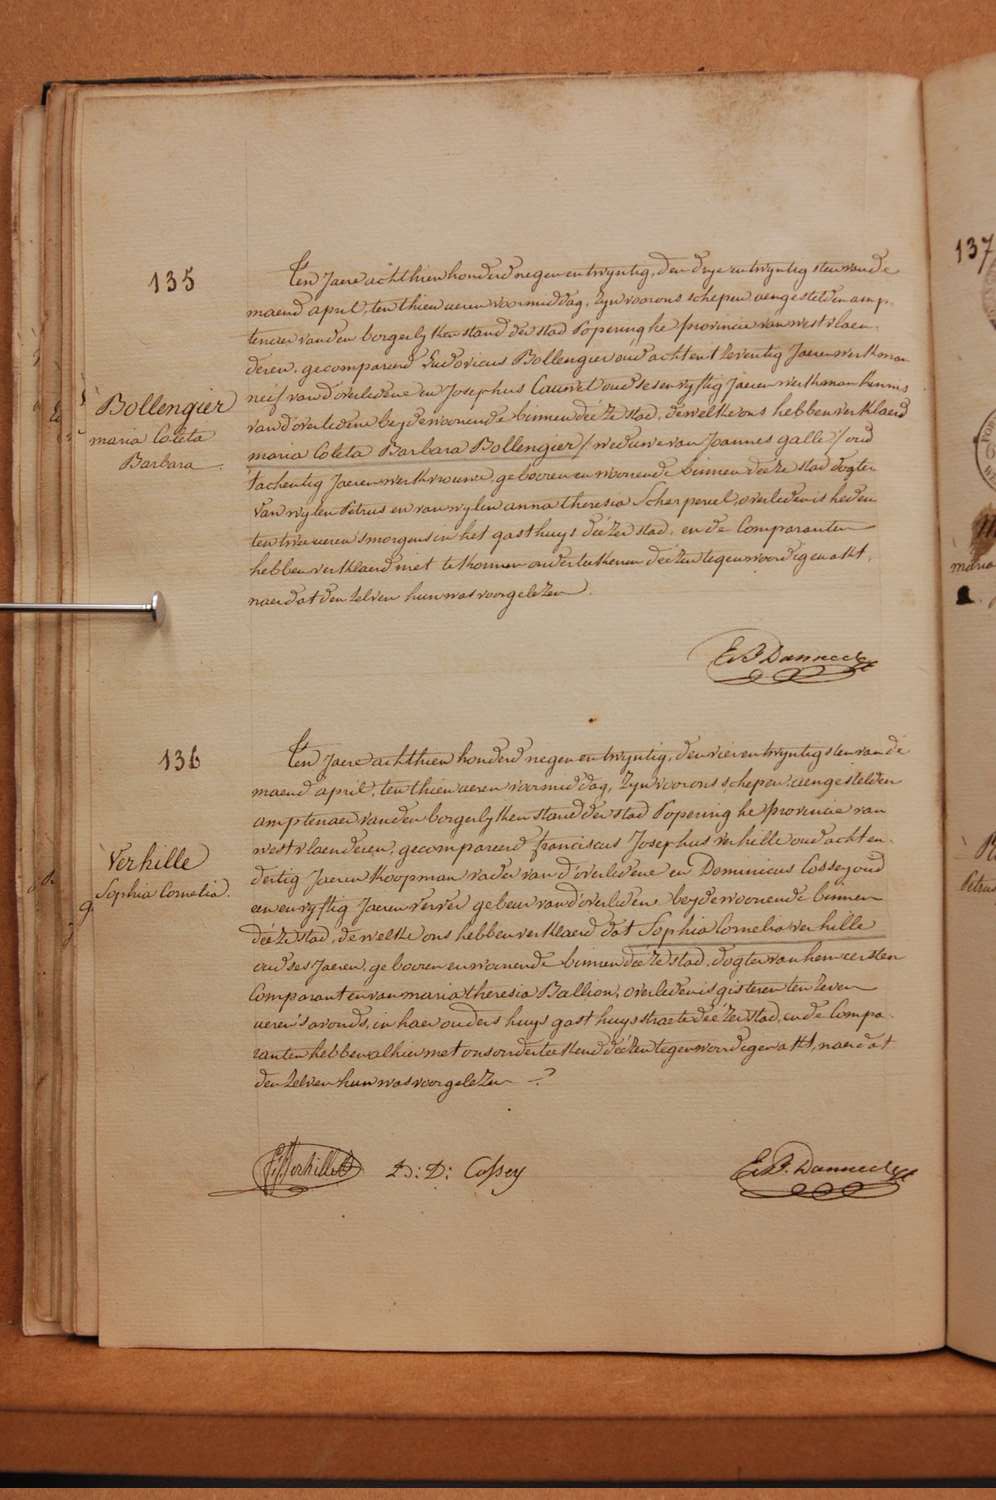 135
Ten Jaere achthien honderd negen en twyntig, den drye en twyntigsten van de
maend april, ten thien ueren voormiddag, Zyn voor ons schepen aengestelden amp-
tenaer van den borgerlyken stand der stad Poperinghe provincie van westvlaen-
deren, gecompareerd Ludovicus Bollengier oud acht en tseventig Jaeren werkman
neéf van d'overledene en Josephus Cauvel oud ses en vyftig Jaeren werkman kennis
van d'overledene beyde woonende binnen deéze stad, dewelke ons hebben verklaerd
Bollengier
maria Coleta
Barbara
maria Coleta Barbara Bollengier / weduwe van Joannes galle / oud
tachentig Jaeren werkvrouwe, gebooren en woonende binnen deéze stad dogter
van wylen Petrus en van wylen anna theresia Scherpereel, overleden is heden
ten twee ueren s'morgens in het gasthuys deézer stad, en de Comparanten
hebben verklaerd niet te konnen onderteekenen deézen tegenwoordigen akt,
naer dat den zelven hun was voorgelezen.
136
Ten Jaere achthien honderd negen en twyntig, den vier en twyntigsten van de
maend april, ten thien ueren voormiddag, Zyn voor ons schepen, aengestelden
amptenaer van den borgerlyken stand der stad Poperinghe provincie van
westvlaenderen, gecompareerd franciscus Josephus verhille oud acht en
dertig Jaeren koopman vader van d'overledene en Dominicus Cossey oud
een en vyftig Jaeren verver gebeur van d'overledene beyde woonende binnen
Verhille
Sophia Cornelia
deéze stad, dewelke ons hebben verklaerd dat Sophia Cornelia verhille
oud ses Jaeren, gebooren en woonende binnen deéze stad, dogter van hem eersten
Comparant en van maria theresia Ballion, overleden is gisteren ten zeven
ueren s'avonds, in haer ouders huys gasthuysstraete deézer stad, en de Compa-
ranten hebben alhier met ons onderteekend deézen tegenwoordigen akt, naer dat
den zelven hun was voorgelezen
D: D: Cossey
137
maria
Petrus